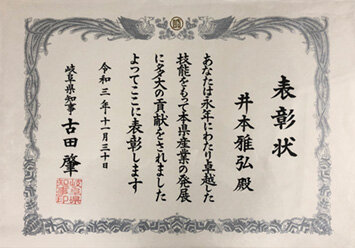 表彰状
井本雅弘殿
あなたは永年にわたり卓越した
技能をもって本県産業の発展
に多大の貢献をされました
よってここに表彰します
令和三年十一月三十日
岐阜県知事 古田肇
岐阜県知事印